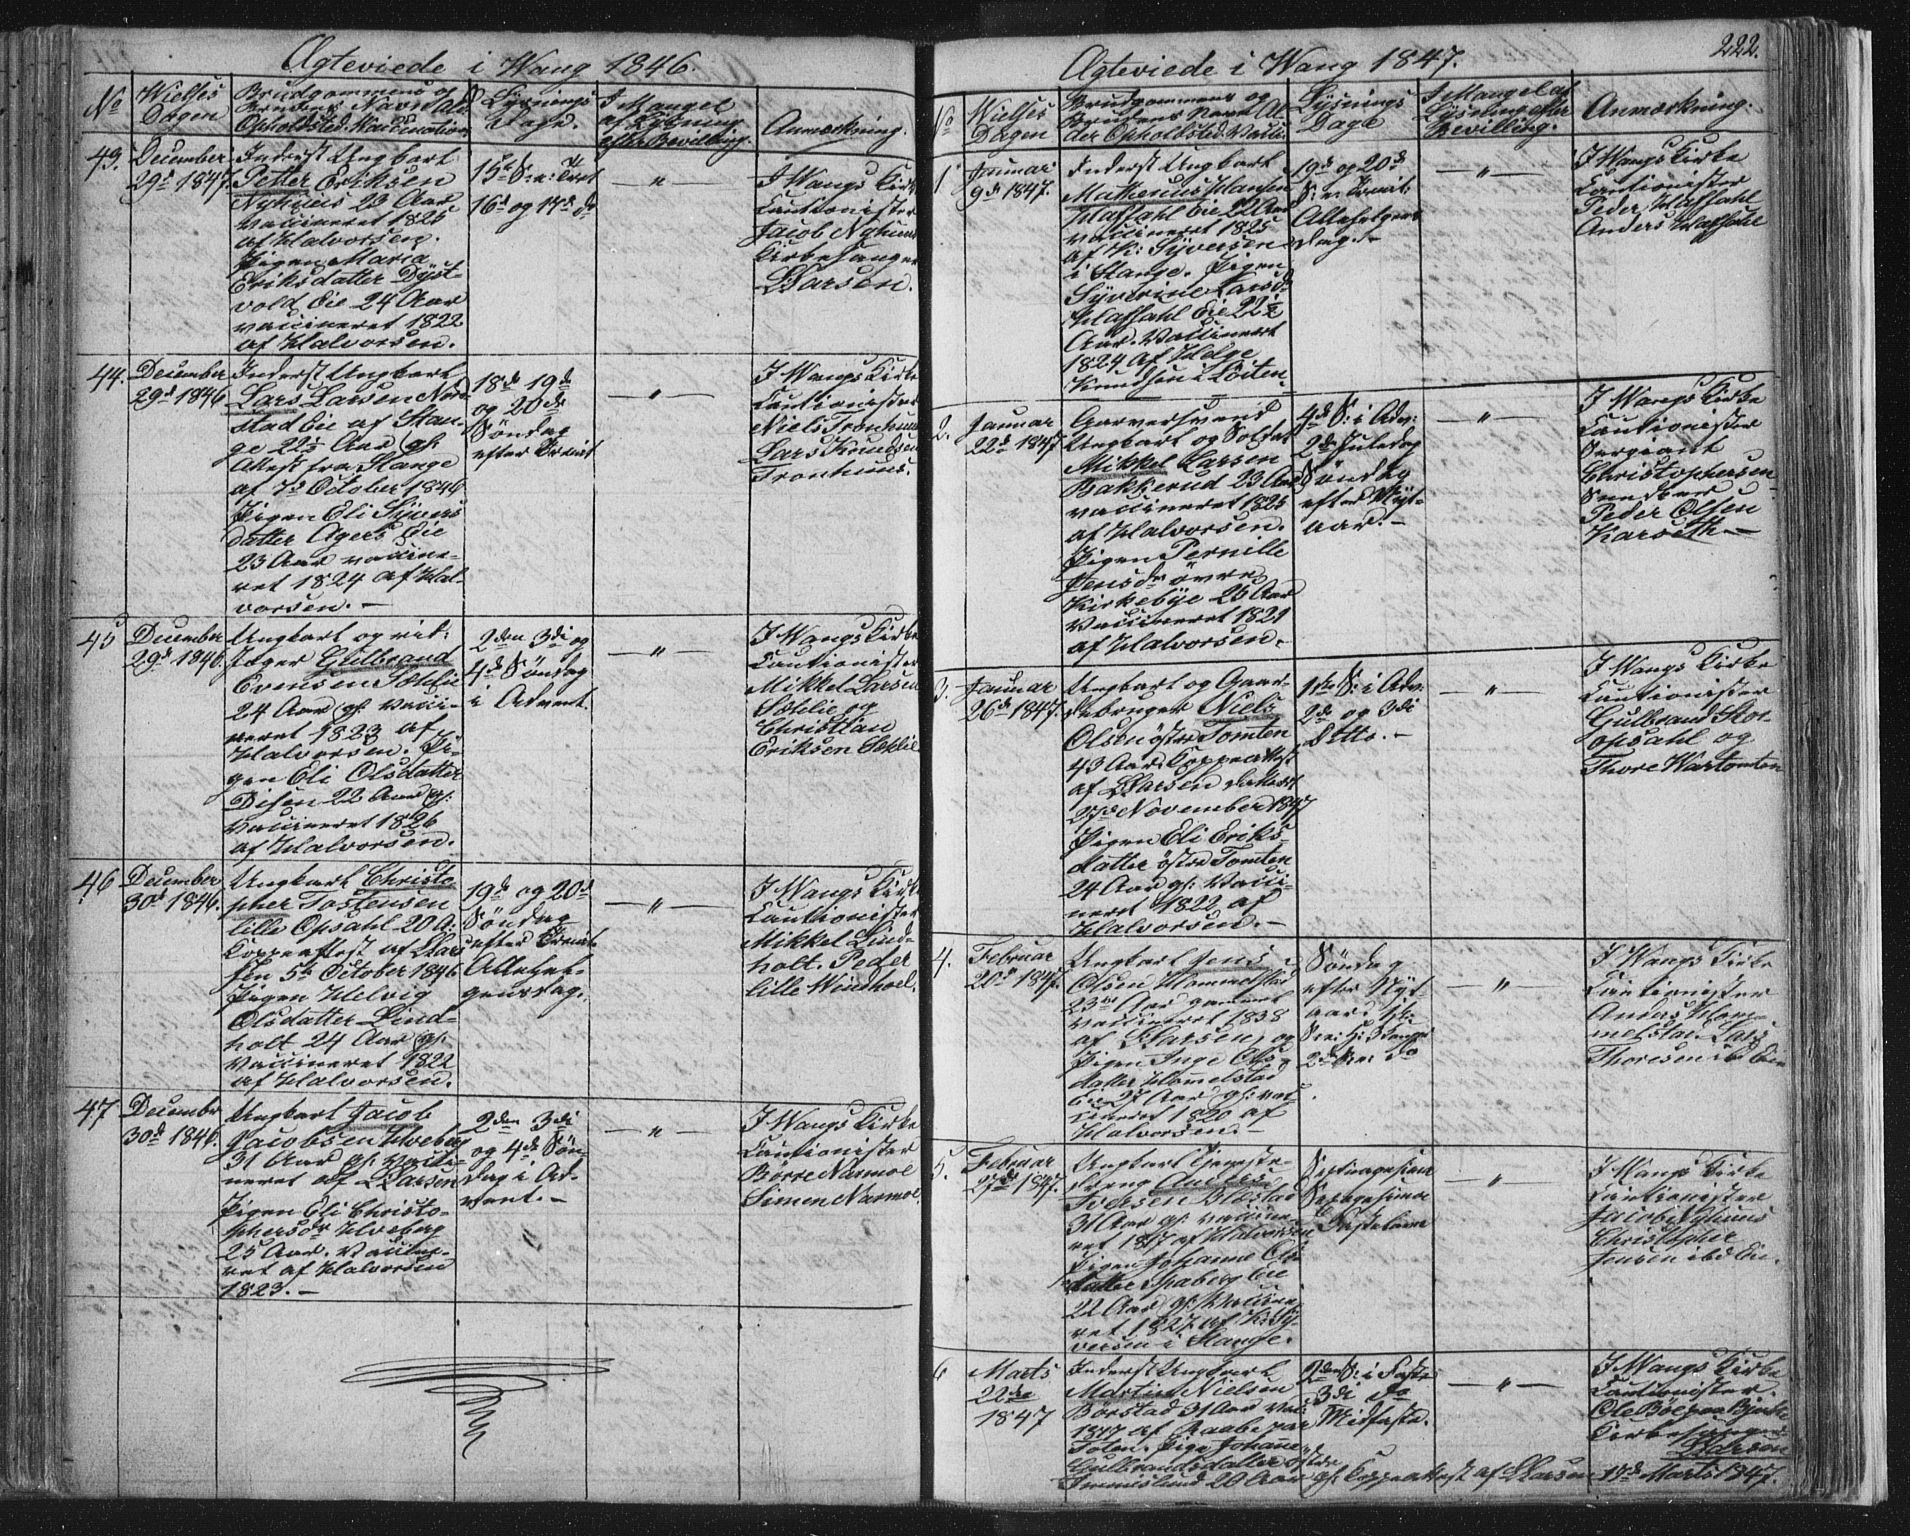 Ægteviede i Wang 1846.
No
Vielses
Dagen
Brudgommens og
Brudens Navn Al.
Opholdsted. Vaccination
Lysnings
Dage.
I Mangel
af Lysning
efter Bevilling.
Anmærkning.
43.
December
29d 1847.
Inderst Ungkarl
Petter Eriksen
Nyhuus 23 Aar
vaccineret 1825
af Halvorsen.
Pigen Maria
Eriksdatter Dyst-
vold Eie 24 Aar
vaccineret 1822
af Halvorsen.
15de S. e: Trct
16d og 17d do
— " —
I Wangs Kirke
Cautionister
Jacob Nyhuus
Kirkesanger
Larsen.
44.
December
29d 1846
Inderst Ungkarl
Lars Larsen Nord
stad Eie af Stan-
ge 22½ Aar gl:
Attest fra Stange
af 7d October 1846
Pigen Eli Syvers
datter Agers Eie
23 Aar vaccine-
ret 1824 af Hal-
vorsen. —
18de 19de
og 20de
Söndag
efter Trinit
— " —
I Wangs Kirke
Cautionister
Niels Tronhuus
Lars Knudsen
Tronhuus.
45
December
29d 1846.
Ungkarl og rid:
Jæger Gulbrand
Evensen Sælie
24 Aar gl: vacci-
neret 1823 af
Halvorsen. Pi-
gen Eli Olsdatter
Disen 22 Aar gl:
vaccineret 1826
af Halvorsen.
2den 3di og
4de Söndag
i Advent.
— " —
I Wangs Kirke
Cautionister
Mikkel Larsen
Sælie og
Christian
Eriksen Sælie
46
December
30d 1846.
Ungkarl Christo
pher Tostensen
lille Opsahl 20 A:
Koppeattest af Lar
sen 5te October 1846
Pigen Helvig
Olsdatter Lind-
holt 24 Aar gl:
vaccineret 1822
af Halvorsen.
19de og 20d
Söndag
efter Trinit
Allehel-
gensdag.
— " —
I Wangs Kirke
Cautionister
Mikkel Lind-
holt. Peder
lille Windhoel.
47
December
30d 1846.
Ungkarl Jacob
Jacobsen Hveberg
31 Aar gl: vacci-
neret af Larsen
Pigen Eli Christo-
phersdr Hveberg
25 Aar. vaccine-
ret af Halvorsen
1823. —
2den 3di
og 4de Sön-
dag i Ad-
vent. —
— " —
I Wangs Kirke
Cautionister
Börre Narmoe
Simen Narmoe.
222.
Ægteviede i Wang 1847.
No
Vielses
Dagen
Brudgommens og
Brudens Navn Al-
der Opholdsted. Vacci
Lysnings
Dage
I Mangel af
Lysning efter
Bevilling.
Anmærkning.
1
Januar
9d 1847.
Inderst Ungkarl
Mathenius Hansen
Haffahl Eie 22 Aar
vaccineret 1825
af K: Syversen
i Stange. Pigen
Syverine Larsd.
Haffahl Eie 22½
Aar. Vaccineret
1824 af Helge
Knudsen i Löiten.
19de og 20de
S: e: Trinit:
Allehelgens
dag. —
— " —
I Wangs Kirke
Cautionister
Peder Haffahl
Anders Haffahl
2.
Januar
22d 1847
Ungkarl og Soldat
Mikkel Larsen
Bakkerud 23 Aar
vaccineret 1825
af Halvorsen.
Pigen Pernille
Jensdr övre
Kirkebye 25 Aar
Vaccineret 1821
af Halvorsen.
4de S: i Adv:
2de Juledag
Söndag
efter Nyt-
aar. —
— " —
I Wangs Kirke
Cautionister
Sergeant
Christophersen
Peder Olsen
Karseth. —
3.
Januar
26d 1847.
Ungkarl og Gaar-
debruger Niels
Olsen östre Tomten
43 Aar. Koppeattest
af Larsen dateret
27d November 1847
Pigen Eli Eriks
datter östre Tomten
24 Aar gl: Vacci-
neret 1822 af
Halvorsen. —
1ste S: i Adv:
2de og 3di
Ditto. —
— " —
I Wangs Kirke
Cautionister
Gulbrand Stor
opsahl og
Thore Wartomten
4.
Februar
20d 1847.
Ungkarl Jens
Olsen Hommelstad
23 Aar gammel
vaccineret 1838
af Larsen, og
Pigen Inge Ols-
datter Hommelstad
Eie 27 Aar gl: vac-
cineret 1820 af
Halvorsen. —
Söndag
efter Nyt-
aar.
— " —
I Wangs Kirke
Cautionister
Anders Hom-
melstad. Lars
Thoresen ibd Eie
5.
Februar
27de 1847.
Ungkarl Tjeneste-
dreng Anders
Iversen Blæstad
31 Aar gl: vaccine-
ret 1817 af Halvorsen
Pigen Johanne Ols-
datter Spaberg Eie
22 Aar gl: Vaccine
ret 1827 af K: Sy-
versen i Stange.
Septuagesima
Sexagesima
Fastelavn
— " —
I Wangs Kirke
Cautionister
Jacob Nyhuus
Christopher
Jensen ibd Eie.
6
Marts
22de
1847
Inderst Ungkarl
Martin Nielsen
Börstad 31 Aar vac:
1817 af Raabe paa
Toten. Pige Johane
Gulbrandsdatter östre
Immeslund 20 Aar gl: Koppeattest af Larsen 17de Marts 1847.
2den S: i Faste
3di do
Midfaste.
— " —
I Wangs Kirke
Cautionister.
Ole Böe paa Bjerke
Kirkesanger
Larsen